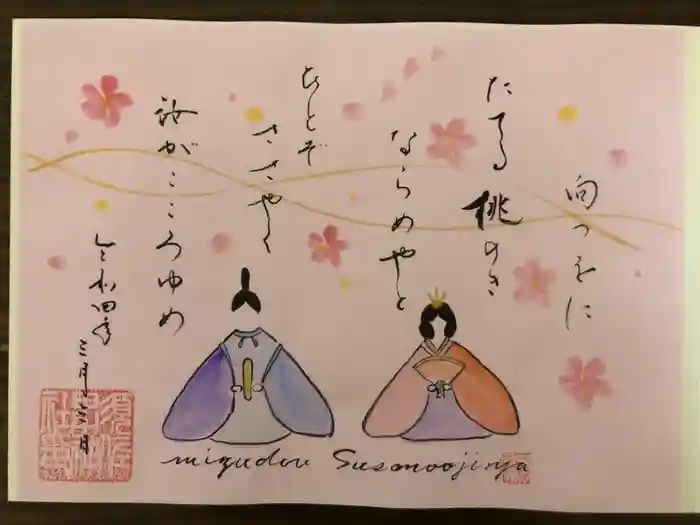 向つをに
たてる桃のき
ならめやと
ひとぞ
ささやく
汝がこころゆめ
令和四年
三月
mizudou Susanoojinja